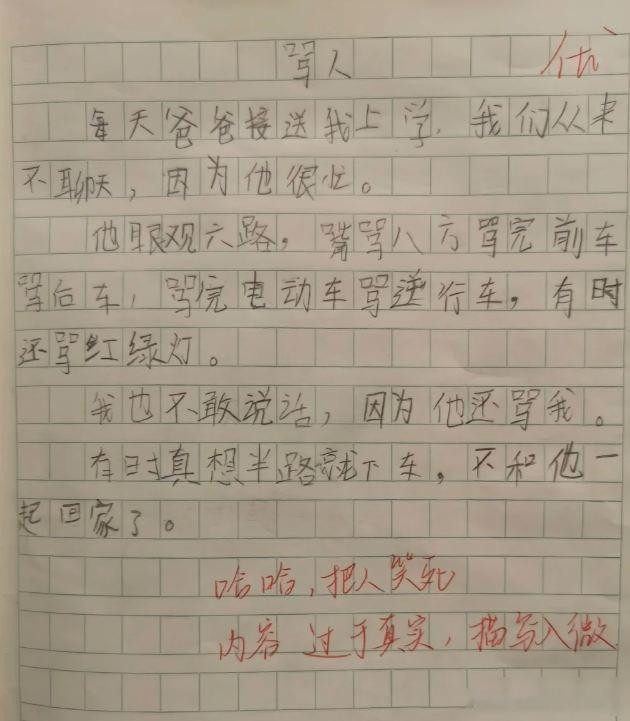 骂人
优
每天爸爸接送我上学,我们从来
不聊天,因为他很忙。
他眼观六路,嘴骂八方骂完前车
骂后车,骂完电动车骂逆行车,有时
还骂红绿灯。
我也不敢说话,因为他还骂我。
有时真想半路就下车,不和他一
起回家了。
哈哈,把人笑死
内容过于真实,描写入微